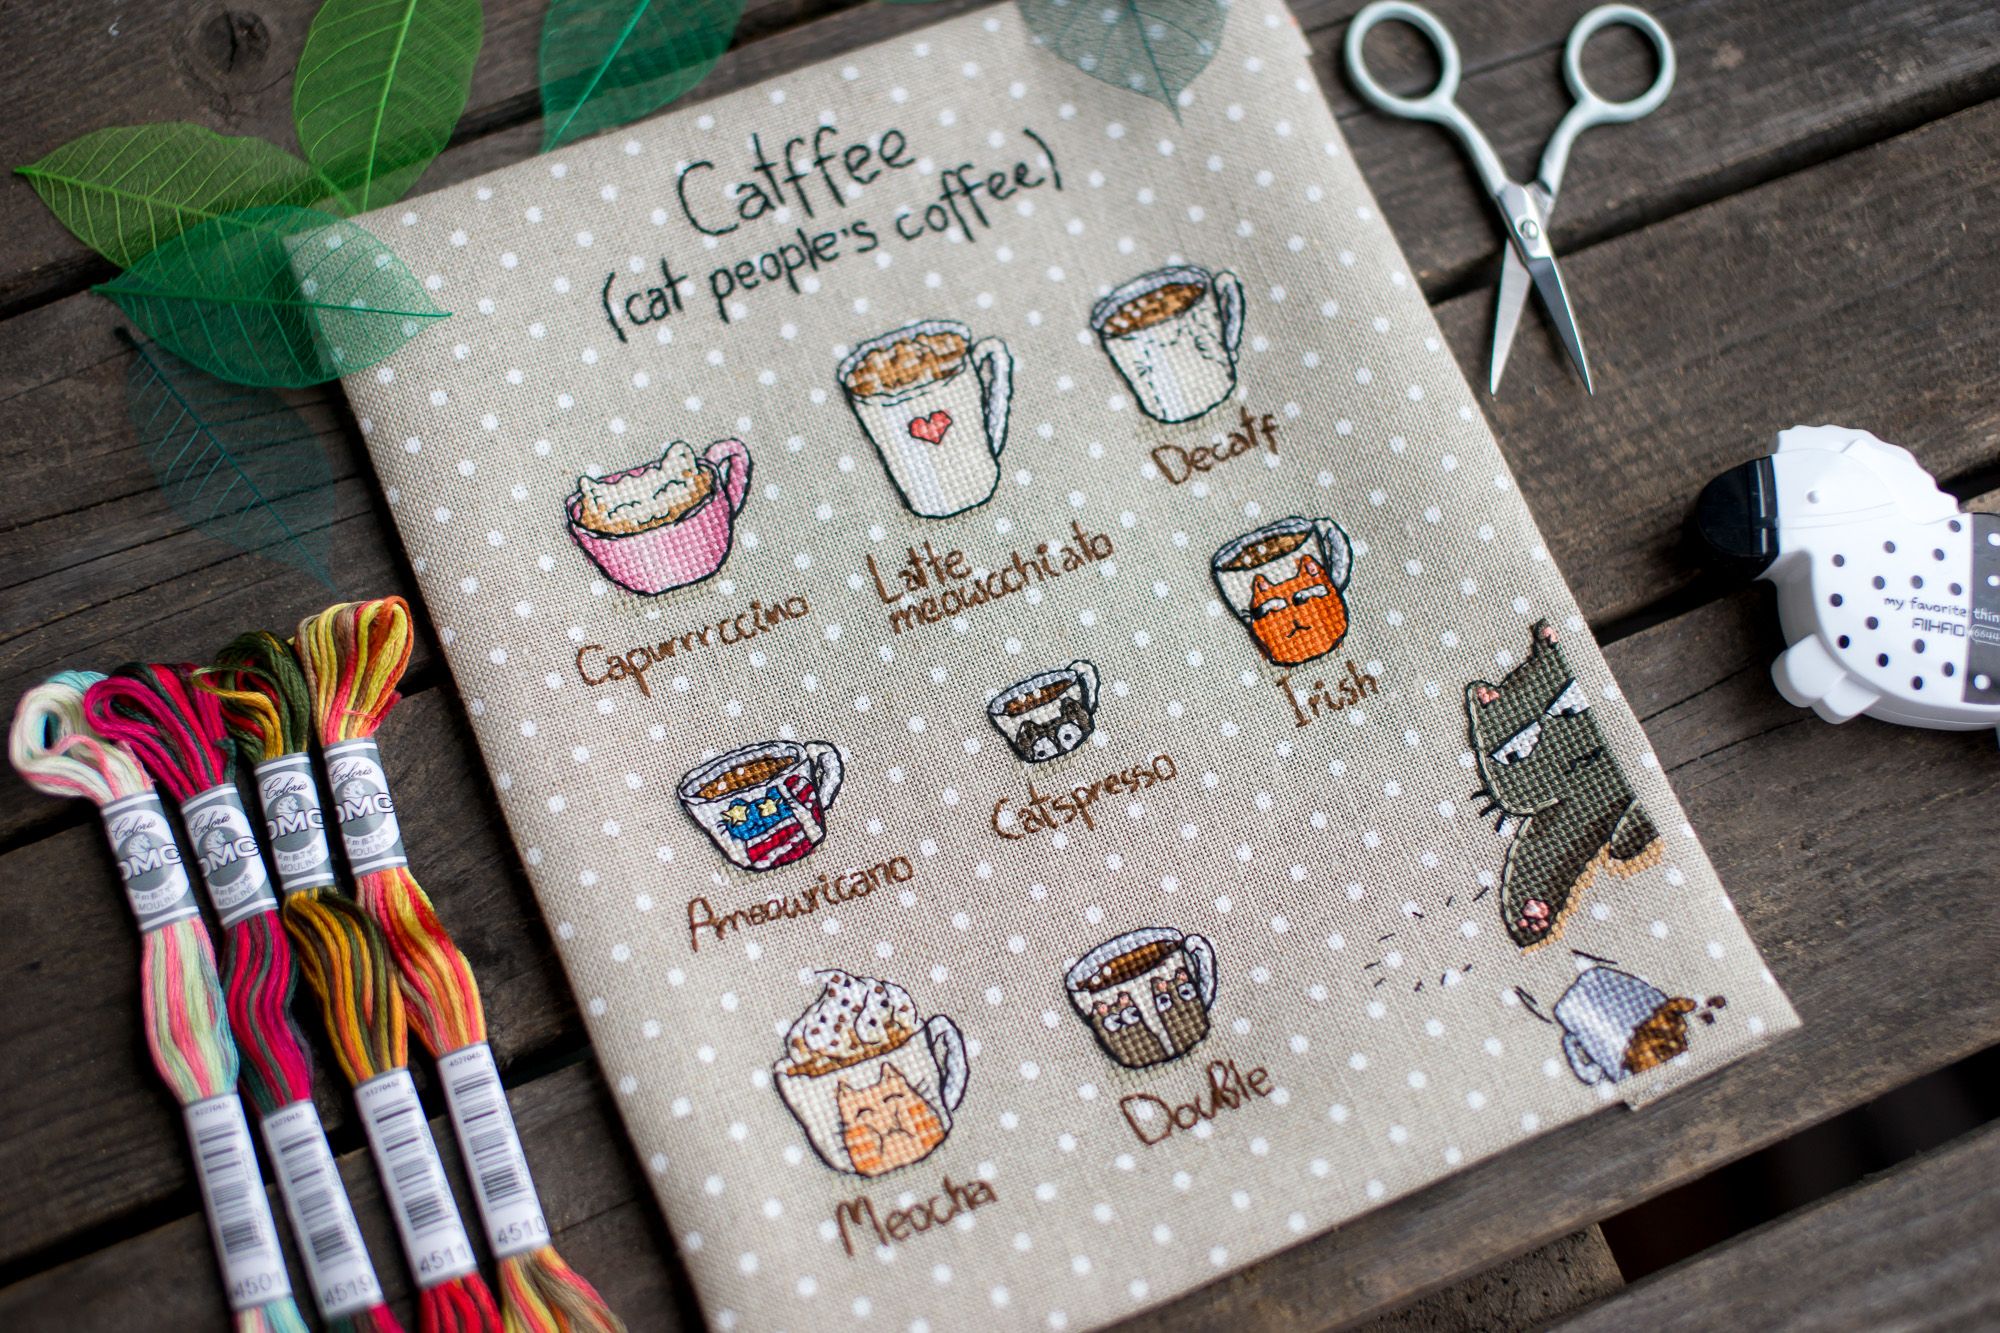 Catffee
(cat people's coffee)
Capurrrccino
Latte
meowcchiato
Decatf
Ameowricano
Catspresso
Irish
Meocha
Double
Coloris
DMC
MOULINÉ
4501
Coloris
DMC
MOULINÉ
4519
Coloris
DMC
MOULINE
4511
Coloris
DMC
4510
my favorite thin
AIHAO